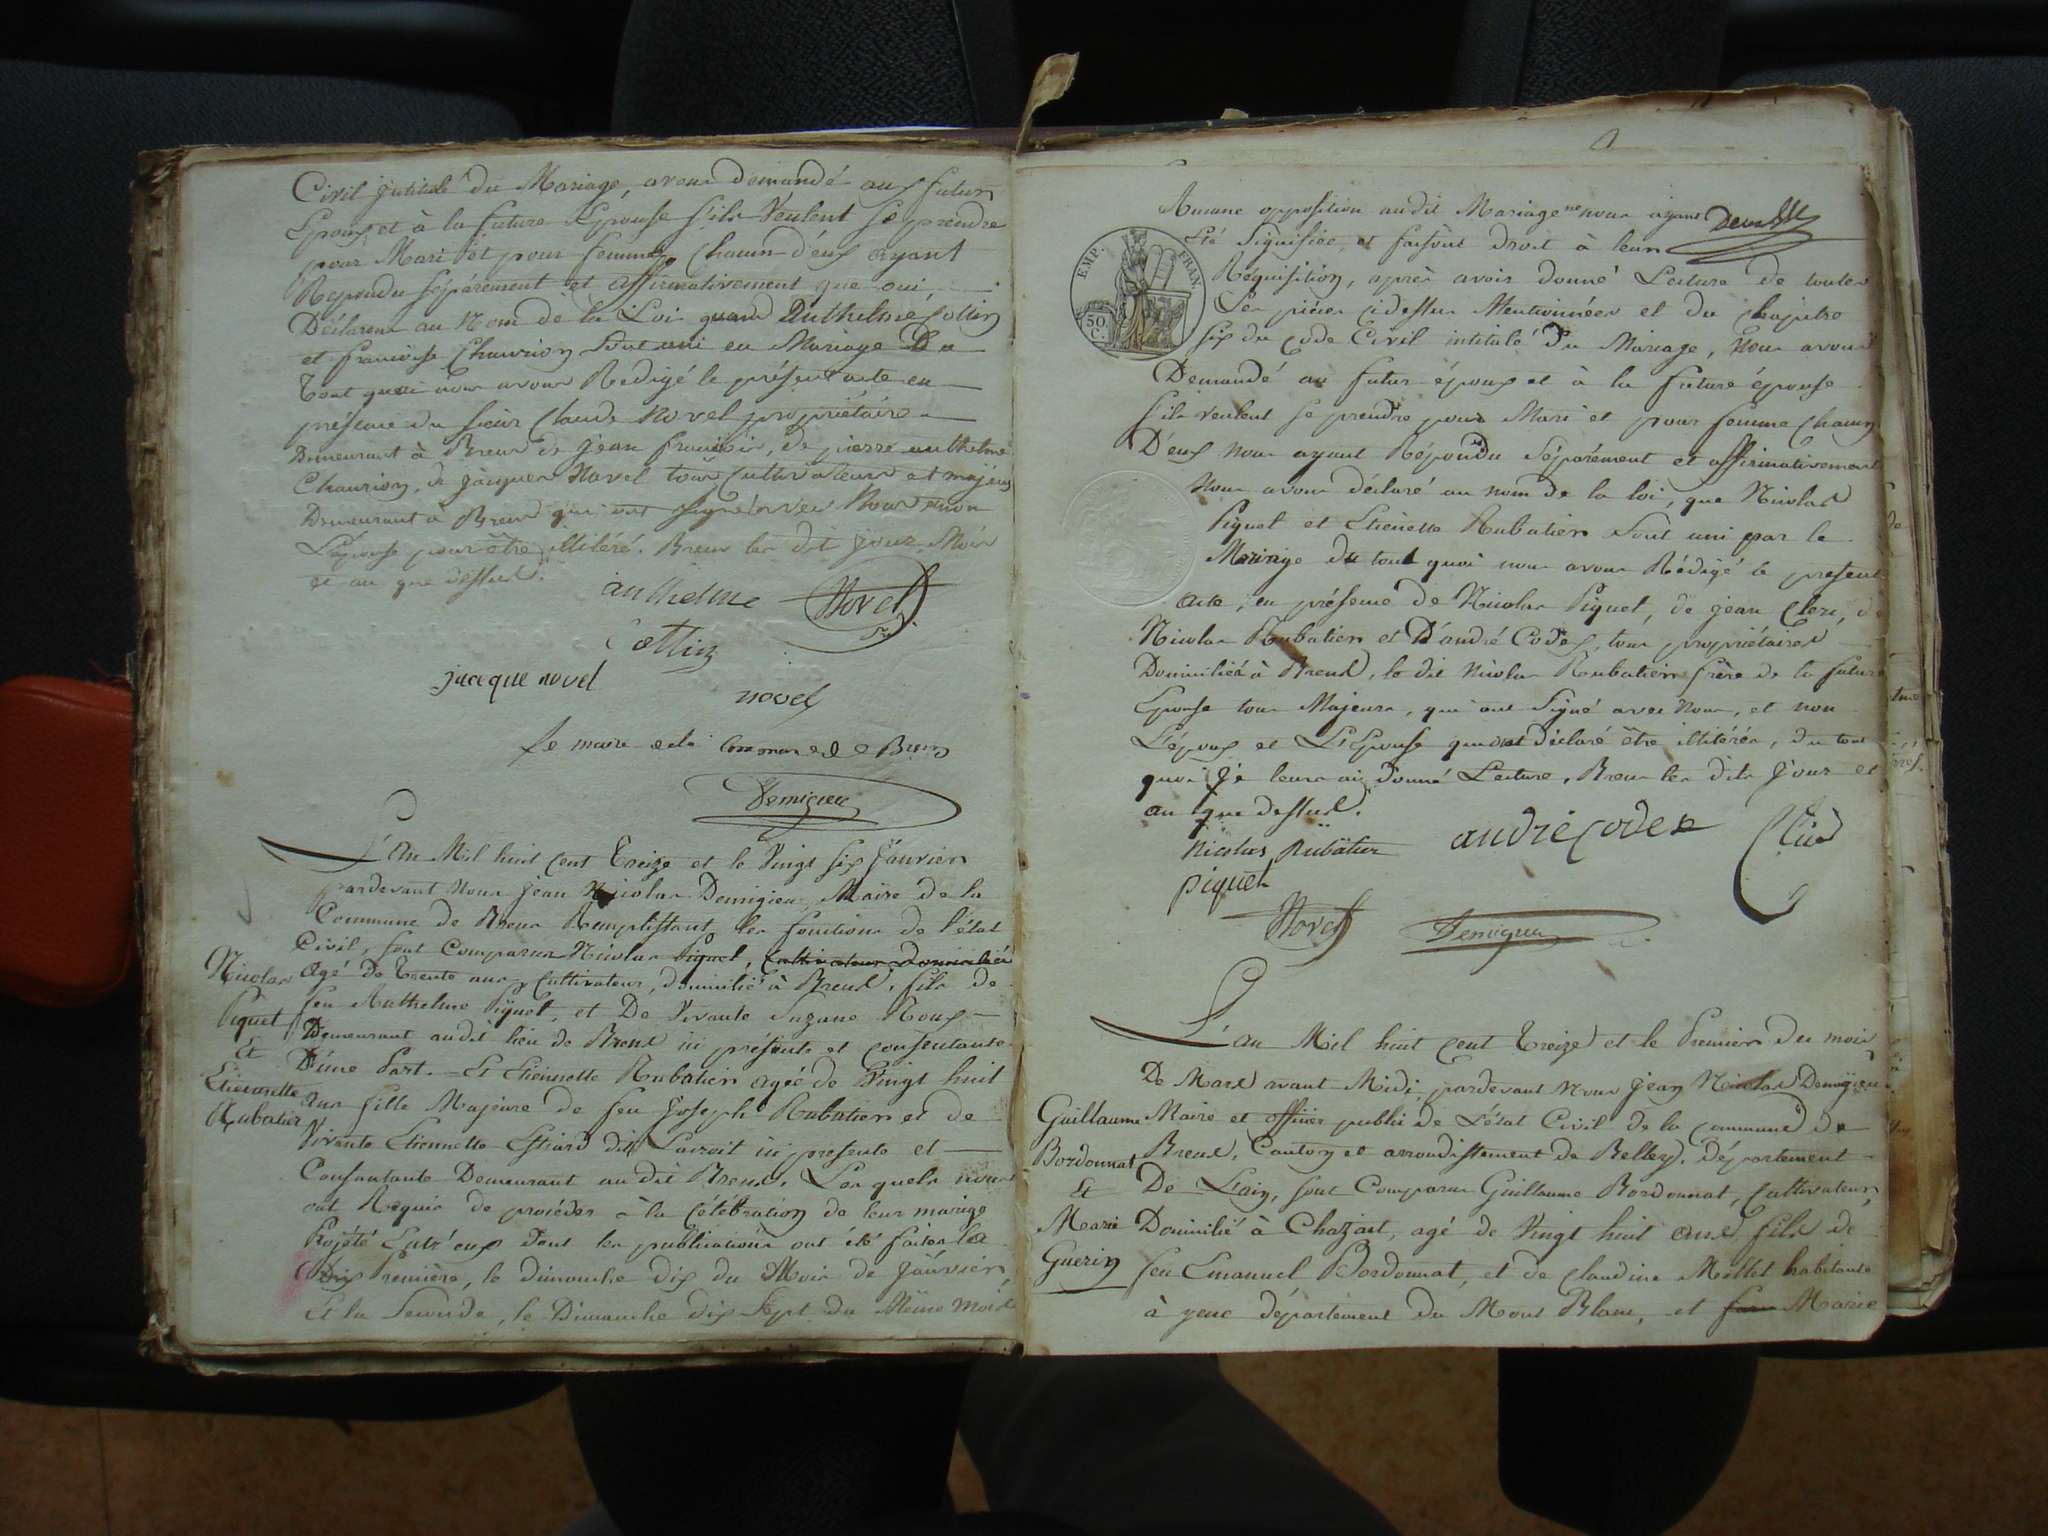 Civil intitulé du Mariage, avons demandé aux futur
Epoux et à la future Epouse s'ils veulent se prendre
pour Mari et pour femme, chacun d'eux ayant
Repondu séparément et affirmativement que oui
Déclarons au Nom de la Loi quand Anthelme Cottin
et francoise Chaurion Sont uni en Mariage Du
tout quoi nous avons Redigé le présent acte en
présence du sieur Claude Novel propriétaire
Demeurant à Brens de jean francois, de pierre anthelme
Chaurion, de jacques Novel tous Cultivateurs et majeurs
Demeurant à Brens qui ont signé avec Nous et non
L'épouse pour être illitéré. Brens les dit jour, Mois
et an que dessus.
anthelme Novel
Cottin
jacque novel
novel
le maire de la commune de Brens
Demigieu
L'an Mil huit cent treize et le Vingt six Janvier
Pardevant Nous jean Nicolas Demigieu, Maire de la
Commune de Brens Remplissant les fonctions de l'état
Civil, sont comparus Nicolas Piquet, Cultivateur Domicilié
Nicolas Piquet Et Etiennette Rubatier
agé de trente ans, cultivateur, domicilié à Brens, fils de
feu Anthelme Piquet, et De Vivante Suzane Roux
Demeurant audit lieu de Brens ici présente et consentante
D'une Part. Et Etiennette Rubatier agée de Vingt huit
ans fille Majeure de feu Joseph Rubatier et de
Vivante Etiennette dit ici presente et
Consentante Demeurant au dit Brens. Lesquels nous
ont Requis de procéder à la Célébration de leur mariage
Projété Entr'eux dont les publications ont été faites la
Première, le dimanche dix du Mois de Janvier,
Et la Seconde, le Dimanche dix Sept du Même Mois
Aucune opposition audit Mariage ne nous ayant
Eté Signifiée, et faisant droit à leur
EMP. FRAN.
50 C.
Réquisition, après avoir donné Lecture de toutes
Les pièces cidessus Mentionnées et du chapitre
six du code Civil intitulé Du Mariage, Nous avons
Demandé au futur époux et à la future épouse
s'ils veulent se prendre pour Mari et pour femme chacun
D'eux nous ayant Répondu Séparément et affirmativement
Nous avons déclaré au nom de la loi, que Nicolas
Piquet et Etienette Rubatier Sont uni par le
Mariage du tout quoi nous avons Rédigé le présent
acte, en présence de Nicolas Piquet, de jean Clerc, de
Nicolas Rubatier et D'andré Codex, tous propriétaires
Domiciliés à Brens, le dit Nicolas Rubatier frère de la future
Epouse tous Majeurs, qui ont Signé avec Nous, et non
L'époux et L'Epouse qui ont déclaré être illitérés, du tout
quoi je leurs ai donné Lecture, Brens les dits jour et
an que dessus.
Nicolas Rubatier andré codex
piquet
Novel Demigieu
L'an Mil huit cent treize et le Premier du mois
De Mars avant Midi, pardevant Nous jean Nicolas Demigieu
Guillaume Bordonnat Et Marie Guerin
Maire et officier public de L'état Civil de la commune de
Brens, Canton et arrondissement de Belley, département
De L'ain, sont Comparus Guillaume Bordonnat, cultivateur,
Domicilié à Chazart, agé de Vingt huit ans, fils de
feu Emanuel Bordonnat, et de claudine Mollet habitante
à yene département du Mont Blanc, et Marie